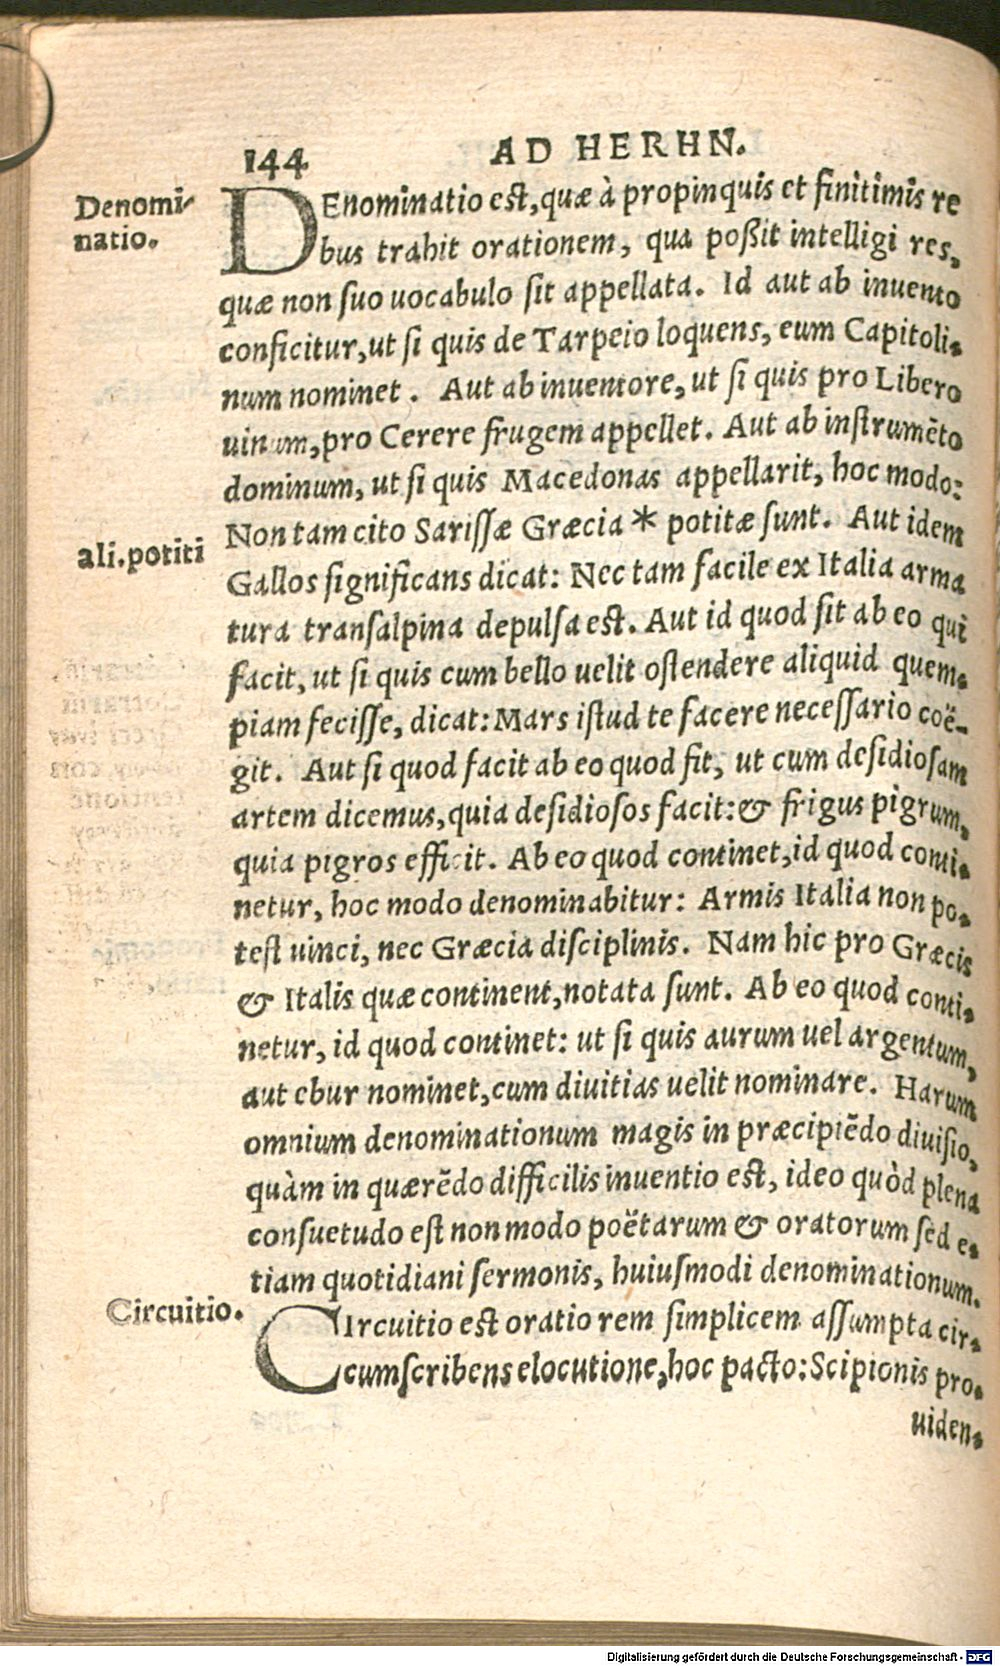 144 AD HERHN.
Denomi-
natio.
DEnominatio est, quæ à propinquis et finitimis re
bus trahit orationem, qua poßit intelligi res,
quæ non suo uocabulo sit appellata. Id aut ab inuento
conficitur, ut si quis de Tarpeio loquens, eum Capitoli-
num nominet. Aut ab inuentore, ut si quis pro Libero
uinum, pro Cerere frugem appellet. Aut ab instrumẽto
dominum, ut si quis Macedonas appellarit, hoc modo:
Non tam cito Sarissæ Græcia * potitæ sunt. Aut idem
ali. potiti
Gallos significans dicat: Nec tam facile ex Italia arma
tura transalpina depulsa est. Aut id quod sit ab eo qui
facit, ut si quis cum bello uelit ostendere aliquid quem-
piam fecisse, dicat: Mars istud te facere necessario coë-
git. Aut si quod facit ab eo quod fit, ut cum desidiosam
artem dicemus, quia desidiosos facit: & frigus pigrum,
quia pigros efficit. Ab eo quod continet, id quod conti-
netur, hoc modo denominabitur: Armis Italia non po-
test uinci, nec Græcia disciplinis. Nam hic pro Græcis
& Italis quæ continent, notata sunt. Ab eo quod conti-
netur, id quod continet: ut si quis aurum uel argentum,
aut ebur nominet, cum diuitias uelit nominare. Harum
omnium denominationum magis in præcipiẽdo diuisio,
quàm in quærẽdo difficilis inuentio est, ideo quòd plena
consuetudo est non modo poëtarum & oratorum sed e-
tiam quotidiani sermonis, huiusmodi denominationum.
Circuitio.
CIrcuitio est oratio rem simplicem assumpta cir-
cumscribens elocutione, hoc pacto: Scipionis pro-
uiden-
Digitalisierung gefördert durch die Deutsche Forschungsgemeinschaft - DFG